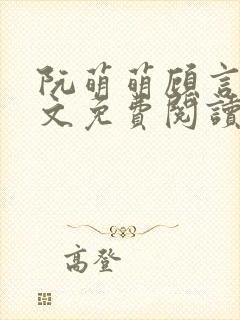 阮萌萌顾言
文免費閱讀
高登